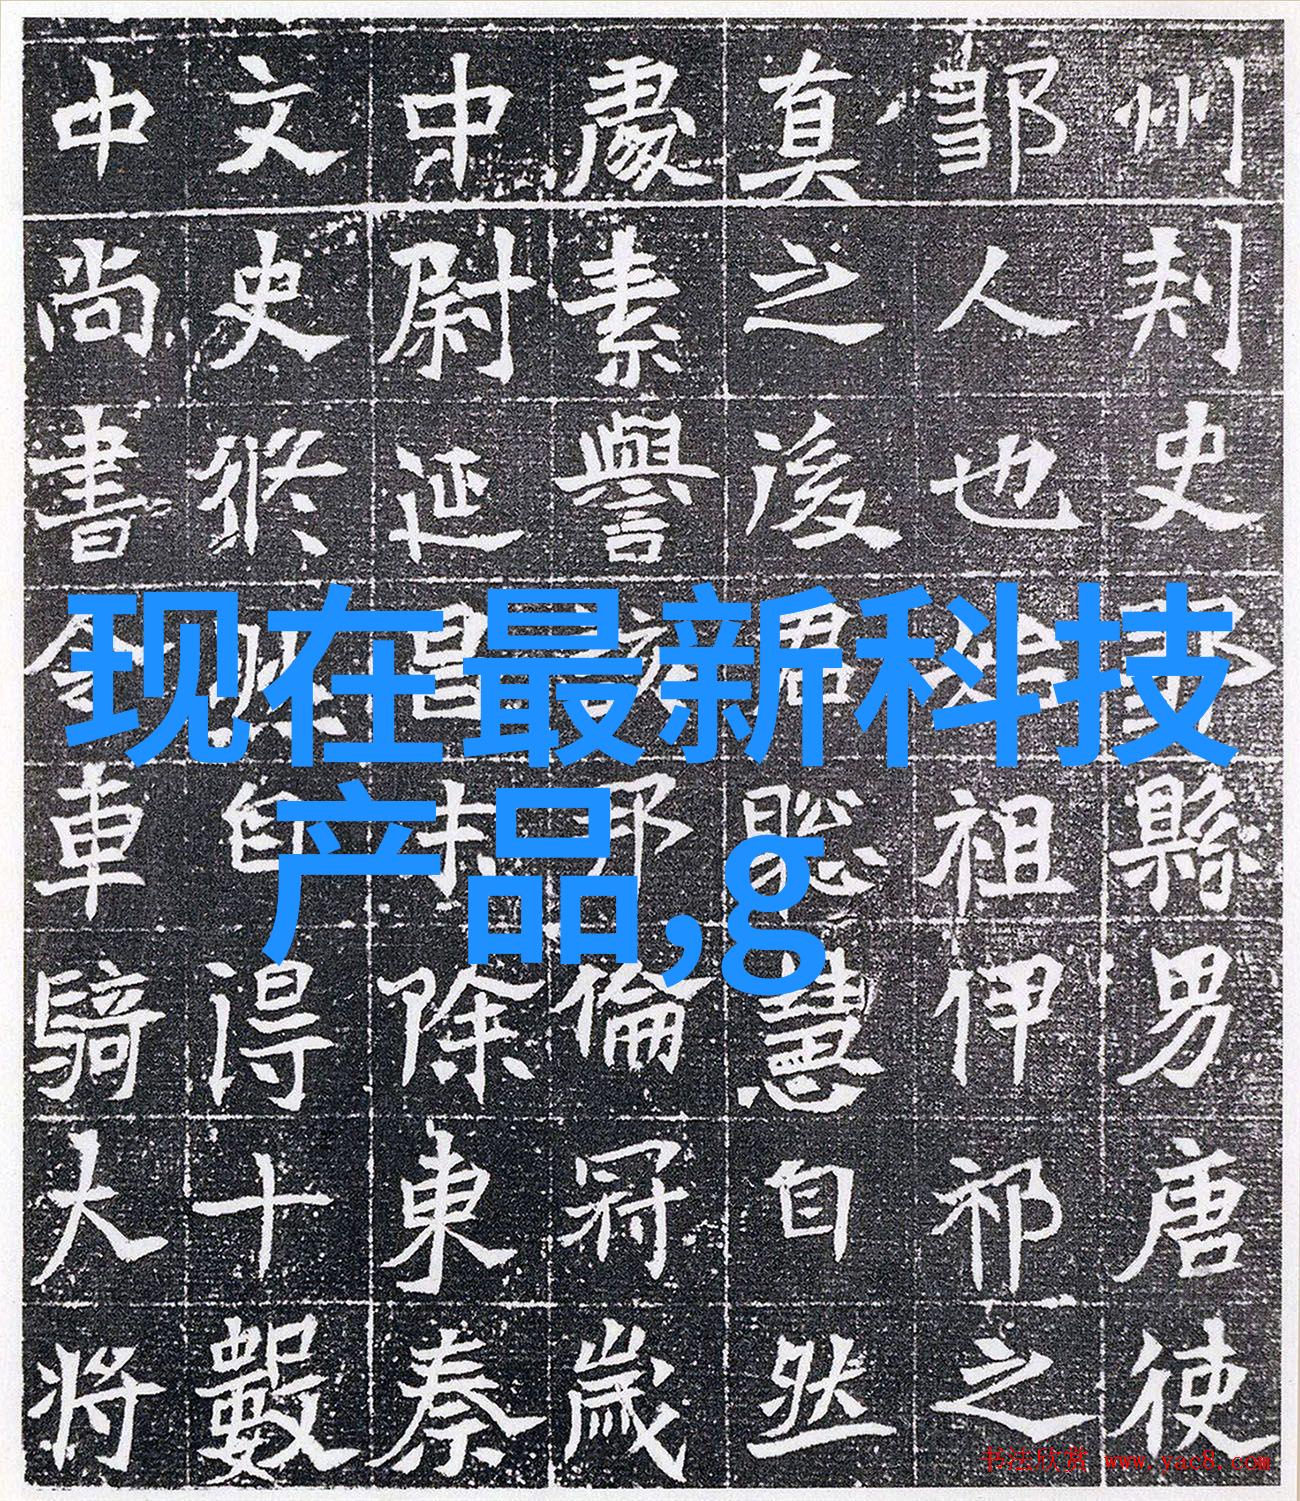 州刾史鄒縣男唐使
鄒人也祖伊祁之
真之後君聡慧自然
處素譽邦倫冠歲
中尉延昌扶除東秦
文史自得十數
中尚書令車騎大將
现在最新科技
产品,g
书法欣赏 www.yac8.com